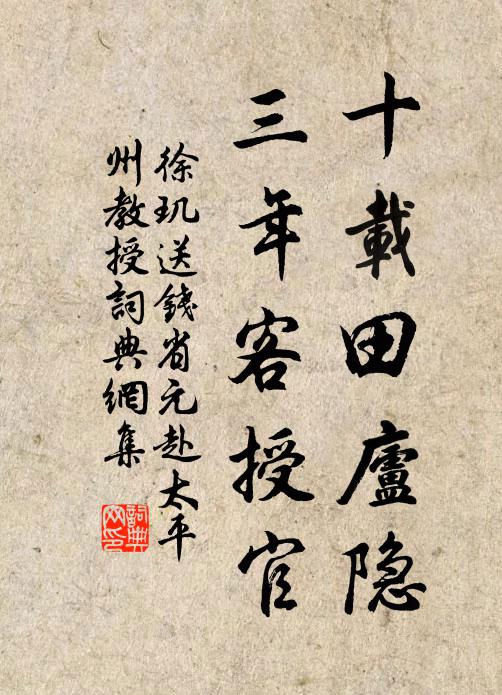 十載田廬隐
三年客授官
徐玑送錢省元赴太平
州教授詞典網集
詞典网印